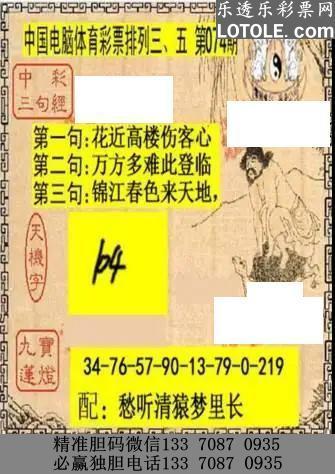 乐透乐彩票网
LOTOLE.COM
中国电脑体育彩票排列三、五 第074期
中彩
三句經
第一句:花近高楼伤客心
第二句:万方多难此登临
第三句:锦江春色来天地,
天機字
九寶
蓮燈
34-76-57-90-13-79-0-219
配：愁听清猿梦里长
精准胆码微信133 7087 0935
必赢独胆电话133 7087 0935